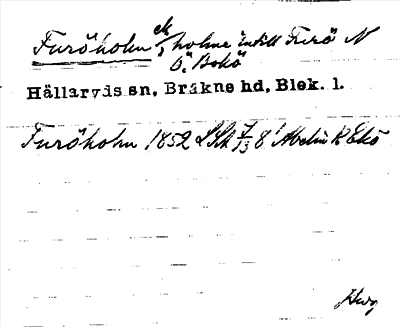 Furöholm ek, holme intill Furö N
Ö. Bokö
Hällaryds sn, Bräkne hd, Blek. l.
Furöholm 1852 LSk 7/13 8' Abelin K Ekö
Hwg